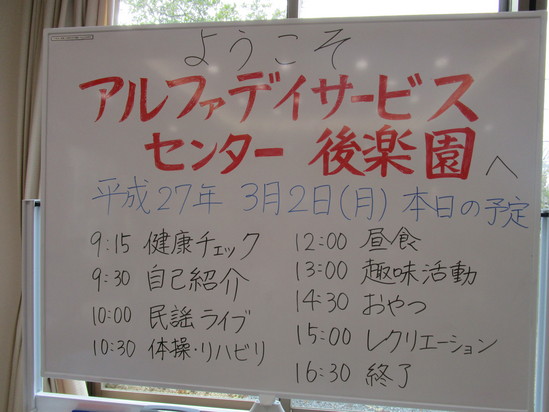 ようこそ
アルファデイサービス
センター 後楽園へ
平成27年 3月2日(月) 本日の予定
9:15 健康チェック
9:30 自己紹介
10:00 民謡ライブ
10:30 体操・リハビリ
12:00 昼食
13:00 趣味活動
14:30 おやつ
15:00 レクリエーション
16:30 終了